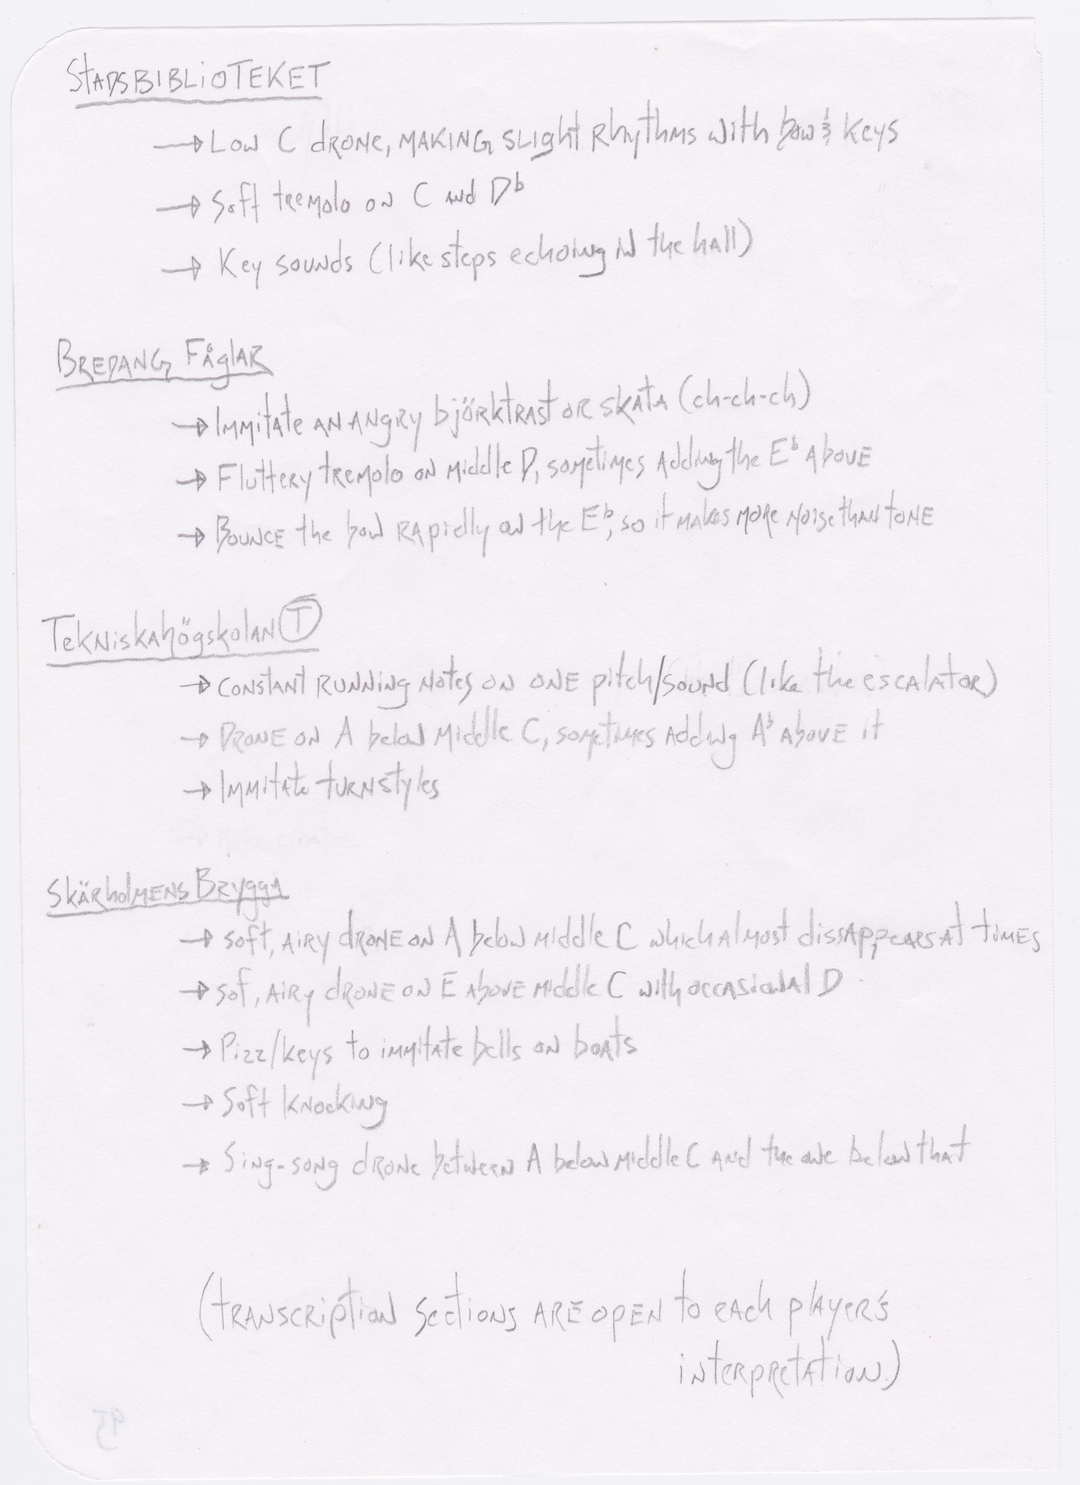 STADSBIBLIOTEKET
→ Low C drone, making slight rhythms with bow & keys
→ Soft tremolo on C and D♭
→ Key sounds (like steps echoing in the hall)
BREDANG FÅGLAR
→ Immitate an angry björktrast or skata (ch-ch-ch)
→ Fluttery tremolo on middle D, sometimes adding the E♭ above
→ Bounce the bow rapidly on the E♭, so it makes more noise than tone
Tekniskahögskolan (T)
→ constant running notes on one pitch/sound (like the escalator)
→ Drone on A below middle C, sometimes adding A♭ above it
→ Immitate turnstyles
Skärholmens Brygga
→ soft, airy drone on A below middle C which almost dissappears at times
→ sof, airy drone on E above middle C with occasional D
→ Pizz/keys to immitate bells on boats
→ Soft knocking
→ Sing-song drone between A below middle C and the one below that
(transcription sections are open to each player's
interpretation.)